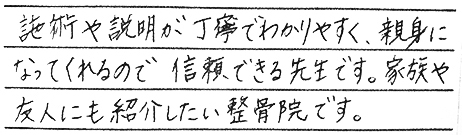 施術や説明が丁寧でわかりやすく、親身に
なってくれるので信頼できる先生です。家族や
友人にも紹介したい整骨院です。